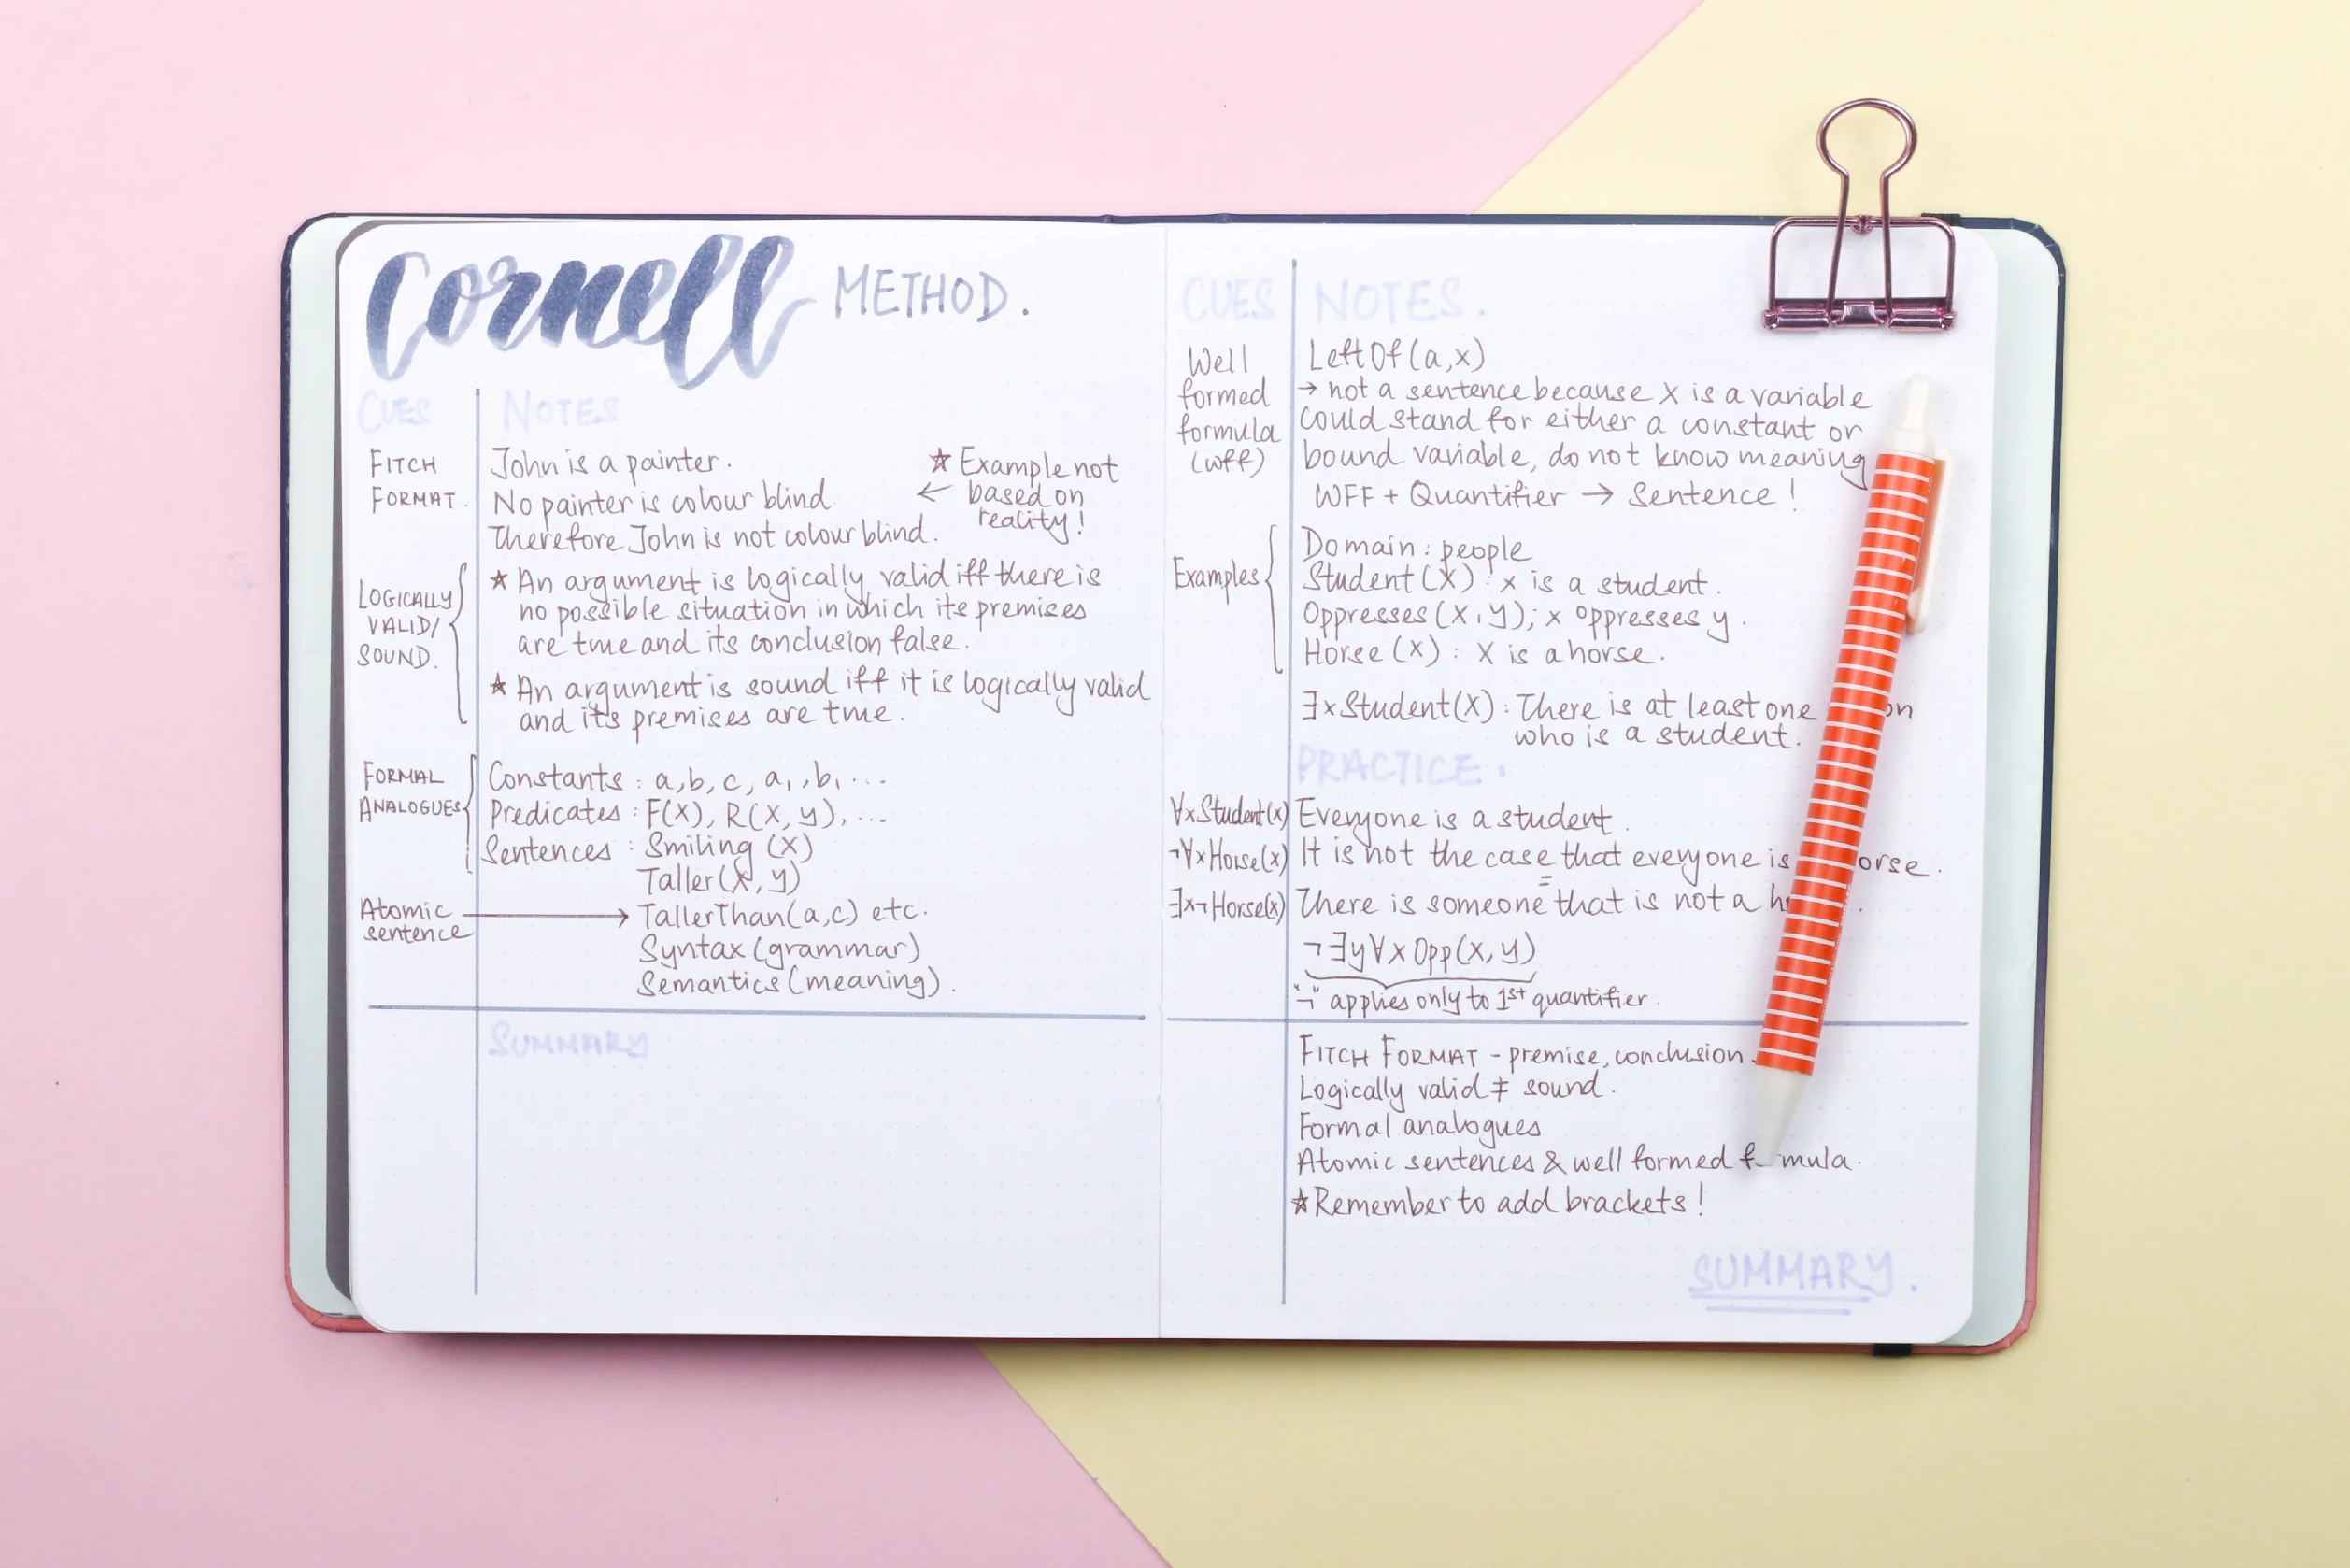 Cornell METHOD.
CUES NOTES
FITCH FORMAT.
John is a painter.
No painter is colour blind.
Therefore John is not colour blind.
★ Example not
← based on
reality!
LOGICALLY
VALID/
SOUND.
★ An argument is logically valid iff there is
no possible situation in which its premises
are true and its conclusion false.
★ An argument is sound iff it is logically valid
and its premises are true.
FORMAL
ANALOGUES
Constants : a, b, c, a₁, b₁ ...
Predicates : F(x), R(x, y), ...
Sentences : Smiling (x)
Taller(x, y)
Atomic
sentence
→ TallerThan(a,c) etc.
Syntax (grammar)
Semantics (meaning).
SUMMARY
CUES NOTES.
Well
formed
formula
(wff)
LeftOf(a,x)
→ not a sentence because x is a variable
could stand for either a constant or
bound variable, do not know meaning
WFF + Quantifier → Sentence!
Examples
Domain : people
Student(x) : x is a student.
Oppresses(x, y); x oppresses y.
Horse(x) : x is a horse.
∃xStudent(x) : There is at least one
who is a student.
PRACTICE.
∀xStudent(x) Everyone is a student.
¬∀xHorse(x) It is not the case that everyone is
=
∃x¬Horse(x) There is someone that is not a
¬∃y∀xOpp(x, y)
"¬" applies only to 1st quantifier.
FITCH FORMAT - premise, conclusion.
Logically valid ≠ sound.
Formal analogues
Atomic sentences & well formed
★ Remember to add brackets!
SUMMARY.